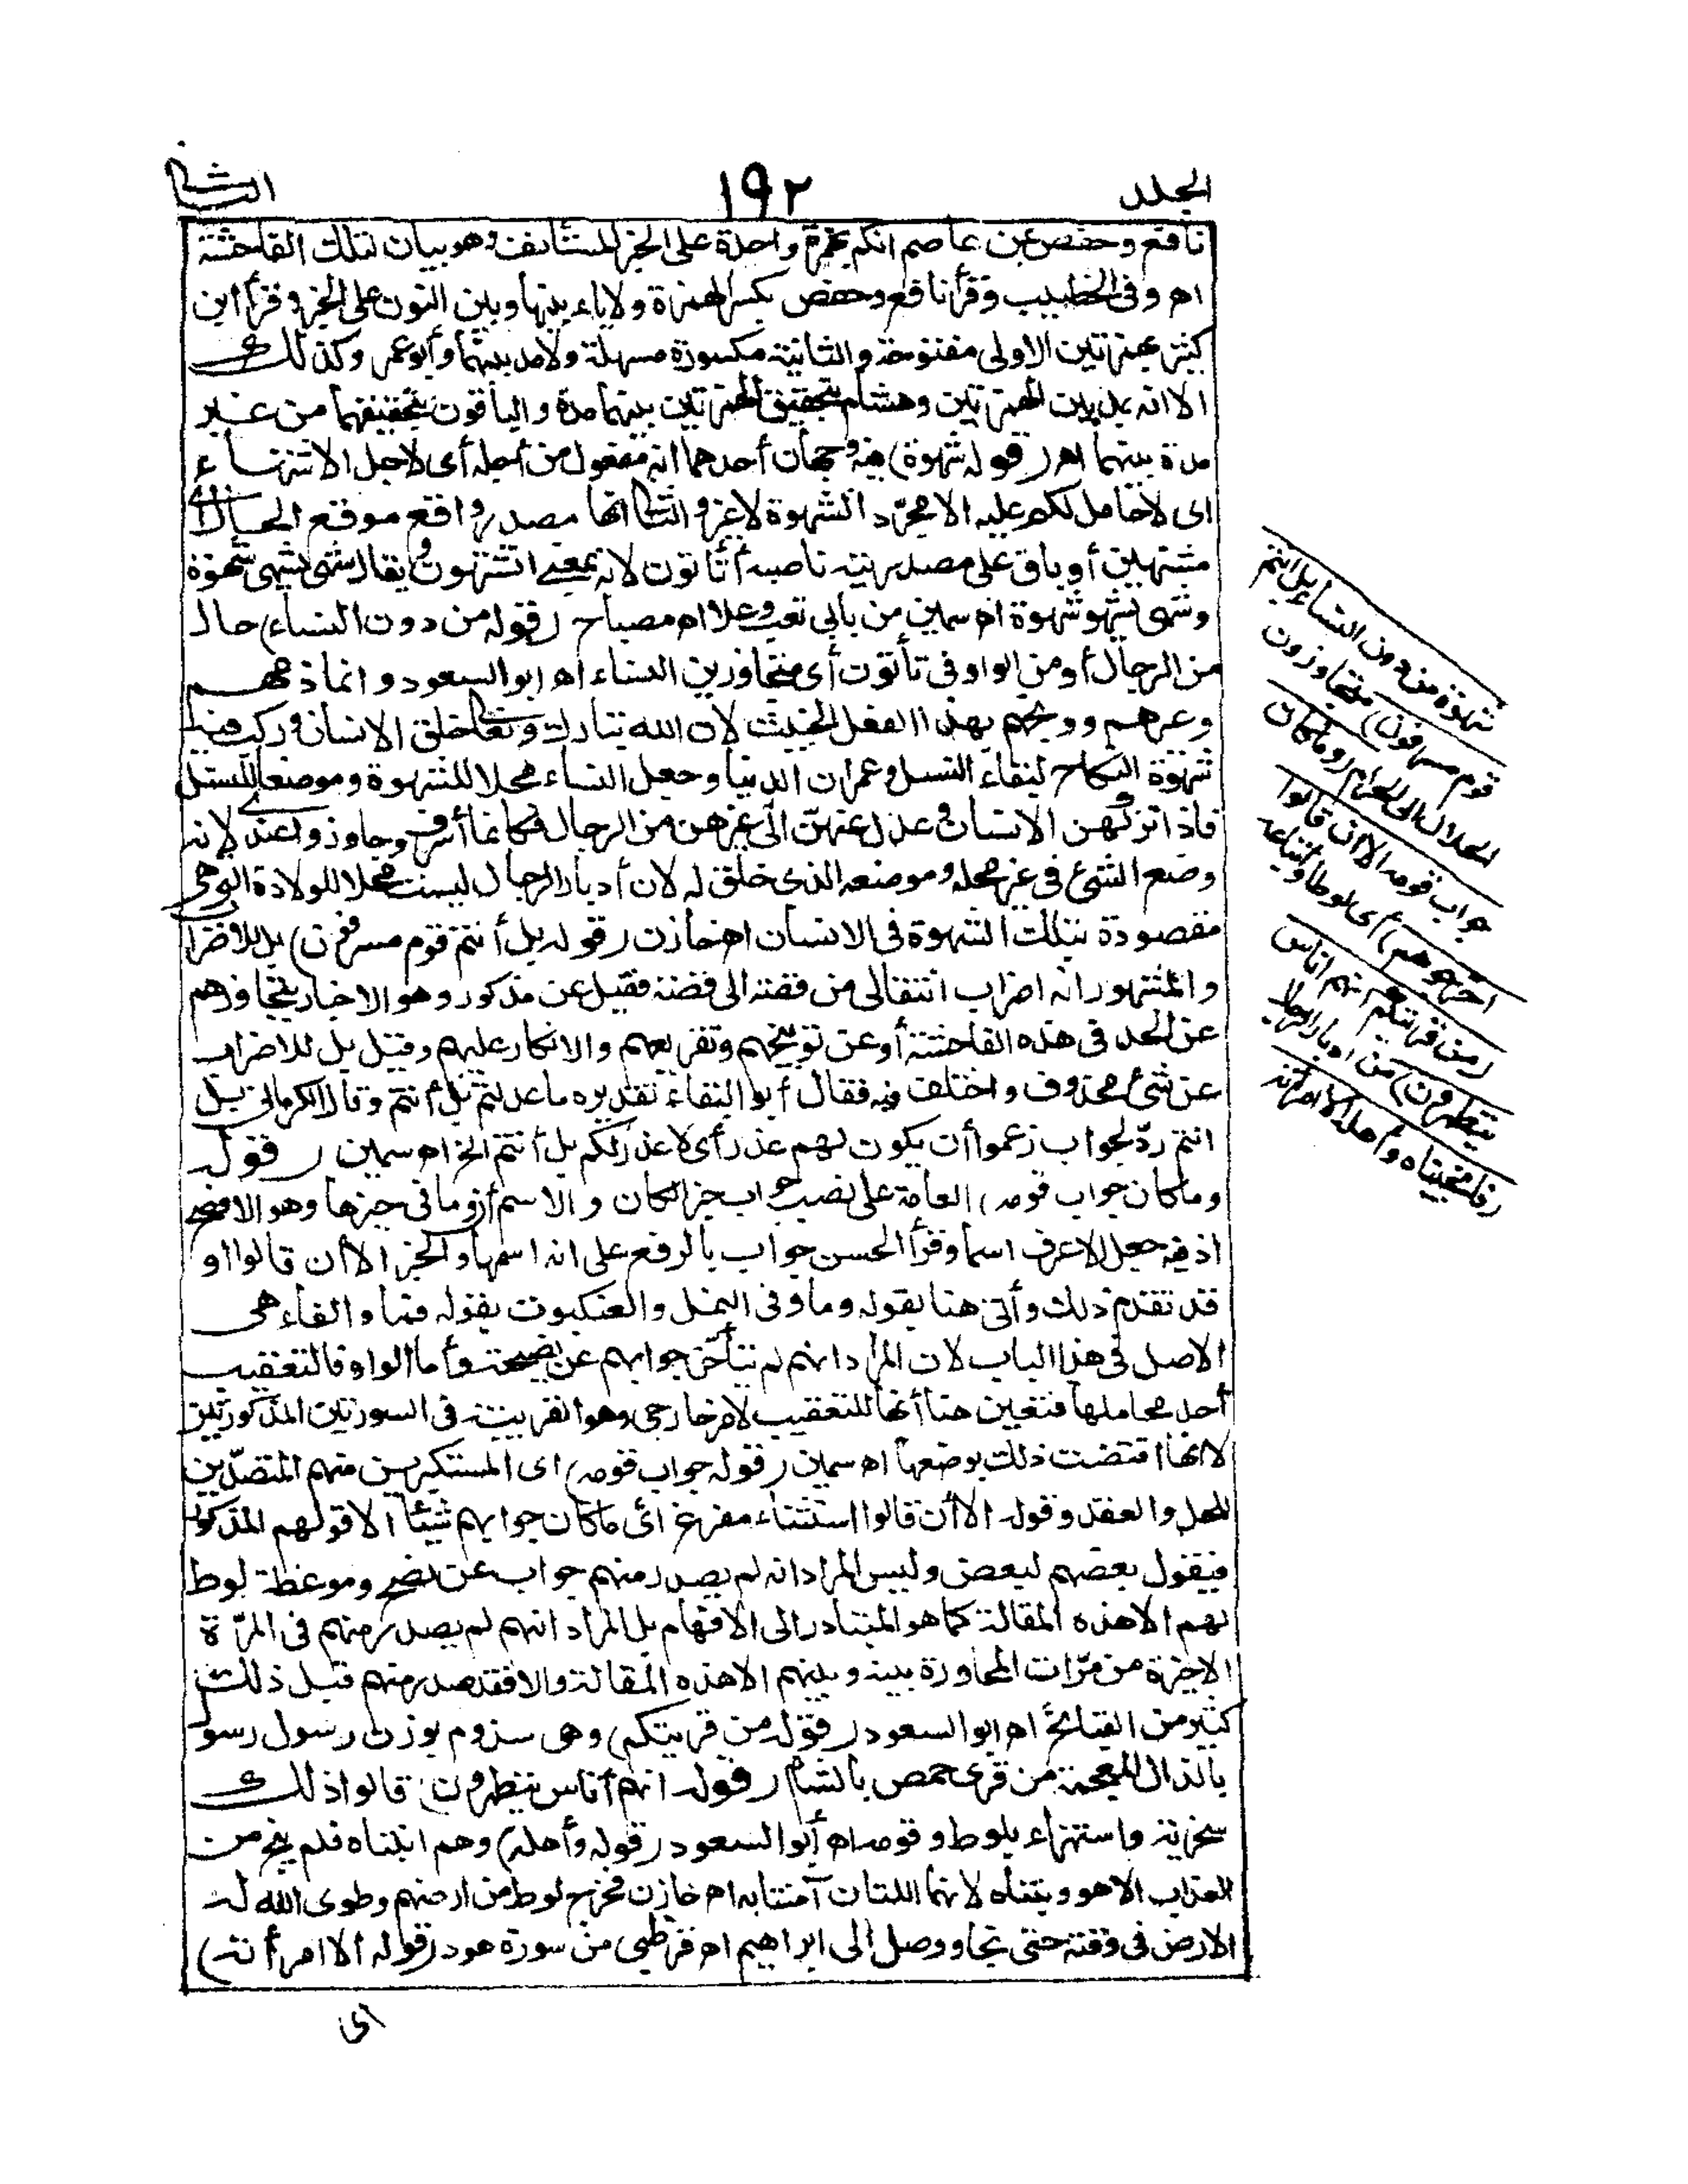 المجلد ١٩٢ الثانى
نافع وحفص عن عاصم انكم بهمزة واحدة على الخبر المستأنف وهو بيان لتلك الفاحشة
اه وفى الخطيب وقرأ نافع وحفص بكسر الهمزة ولاياء بينها وبين النون على الخبر وقرأ ابن
كثير بهمزتين الاولى مفتوحة والثانية مكسورة مسهلة ولامد بينهما وأبو عمر وكذلك
الا انه يمد بين الهمزتين وهشام بتحقيق الهمزتين بينهما مدة والباقون بتحقيقهما من غير
مدة بينهما اه (قوله شهوة) فيه وجهان أحدهما انه مفعول من أجله أى لاجل الاشتهاء
اى لا حامل لكم عليه الا مجرّد الشهوة لا غير والثانى انها مصدر واقع موقع الحال أى
مشتهين أو باق على مصدريته ناصبه أتأتون لانه بمعنى اتشتهون ويقال شهى يشهى شهوة
وشهى يشهو شهوة اه سمين من بابى تعب وعلا اه مصباح (قوله من دون النساء) حال
من الرجال أو من الواو فى تأتون أى متجاوزين النساء اه ابو السعود وانما ذمهم
وعيرهم ووبخهم بهذا الفعل الخبيث لأن الله تبارك وتعالى خلق الانسان وركب فيه
شهوة النكاح لبقاء النسل وعمران الدنيا وجعل النساء محلا للشهوة وموضعا للنسل
فاذا تركهن الانسان وعدل عنهنّ الى غيرهن من الرجال فكأنما أسرف وجاوز واعتدى لانه
وضع الشئ فى غير محله وموضعه الذى خلق له لان أدبار الرجال ليست محلا للولادة التى هى
مقصودة بتلك الشهوة فى الانسان اه خازن (قوله بل أنتم قوم مسرفون) بل للاضراب
والمشهور انه اضراب انتقالى من قصة الى قصة فقيل عن مذكور وهو الاخبار بتجاوزهم
عن الحد فى هذه الفاحشة أو عن توبيخهم وتقريعهم والانكار عليهم وقيل بل للاضراب
عن شئ محذوف واختلف فيه فقال أبو البقاء تقديره ما عدلتم بل أنتم وقال الكرمانى بل
انتم ردّ لجواب زعموا أن يكون لهم عذر أى لا عذر لكم بل أنتم الخ اه سمين (قوله
وما كان جواب قومه) العامة على نصب جواب خبر الكان والاسم أن وما فى حيزها وهو الافصح
اذ فيه جعل الاعرف اسما وقرأ الحسن جواب بالرفع على انه اسمها والخبر الا أن قالوا او
قد تقدم ذلك وأتى هنا بقوله وما وفى النمل والعنكبوت بقوله فما والفاء هى
الاصل فى هذا الباب لان المراد انهم لم يتأخر جوابهم عن نصيحته وأما الواو فالتعقيب
أحد محاملها فتعين هنا أنها للتعقيب لامر خارجى وهو القرينة فى السورتين المذكورتين
لا انها اقتضت ذلك بوضعها اه سمين (قوله جواب قومه) اى المستكبرين منهم المتصدّين
للحل والعقد وقوله الا أن قالوا استثناء مفرغ أى ما كان جوابهم شيئا الا قولهم المذكور
فيقول بعضهم لبعض وليس المراد انه لم يصدر منهم جواب عن نصح وموعظة لوط
لهم الا هذه المقالة كما هو المتبادر الى الافهام بل المراد انهم لم يصدر منهم فى المرّة
الاخيرة من مرّات المحاورة بينه وبينهم الا هذه المقالة والا فقد صدر منهم قبل ذلك
كثير من القبائح اه ابو السعود (قوله من قريتكم) وهى سذوم بوزن رسول رسو
بالذال المعجمة من قرى حمص بالشام (قوله انهم أناس يتطهرون) قالوا ذلك
سخرية واستهزاء بلوط وقومه اه أبو السعود (قوله وأهله) وهم ابنتاه فلم ينج من
العذاب الا هو وبنتاه لانهما اللتان آمنتا به اه خازن فخرج لوط من ارضهم وطوى الله له
الارض فى وقته حتى نجا ووصل الى ابراهيم اه قرطبى من سورة هود (قوله الا امرأته)
اى
شهوة من دون النساء بل انتم
قوم مسرفون) متجاوزون
الحلال الى الحرام (وما كان
جواب قومه الا ان قالوا
اخرجوهم) أى لوطا واتباعه
(من قريتكم انهم اناس
يتطهرون) من ادبار الرجال
(فانجيناه وأهله الا امرأته